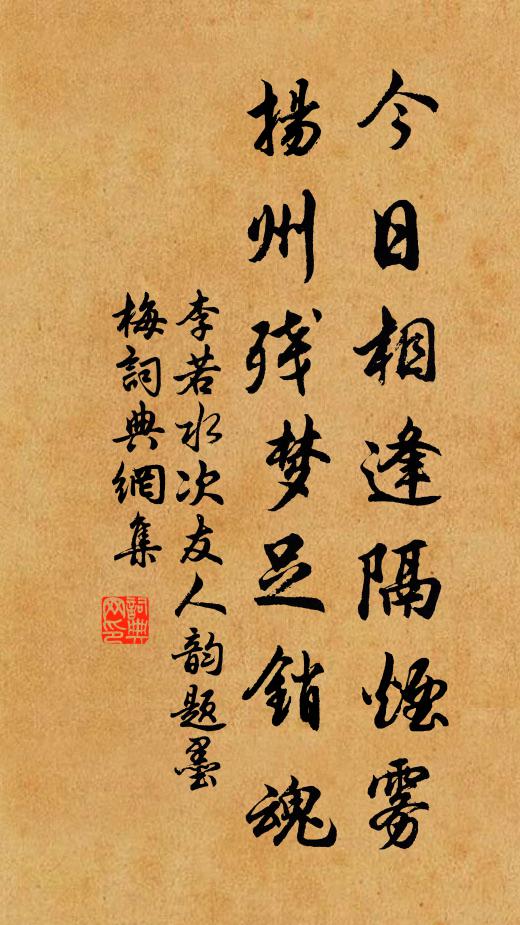 今日相逢隔煙雾
揚州残梦足銷魂
李若水次友人韵题墨
梅詞典網集
詞典
网印